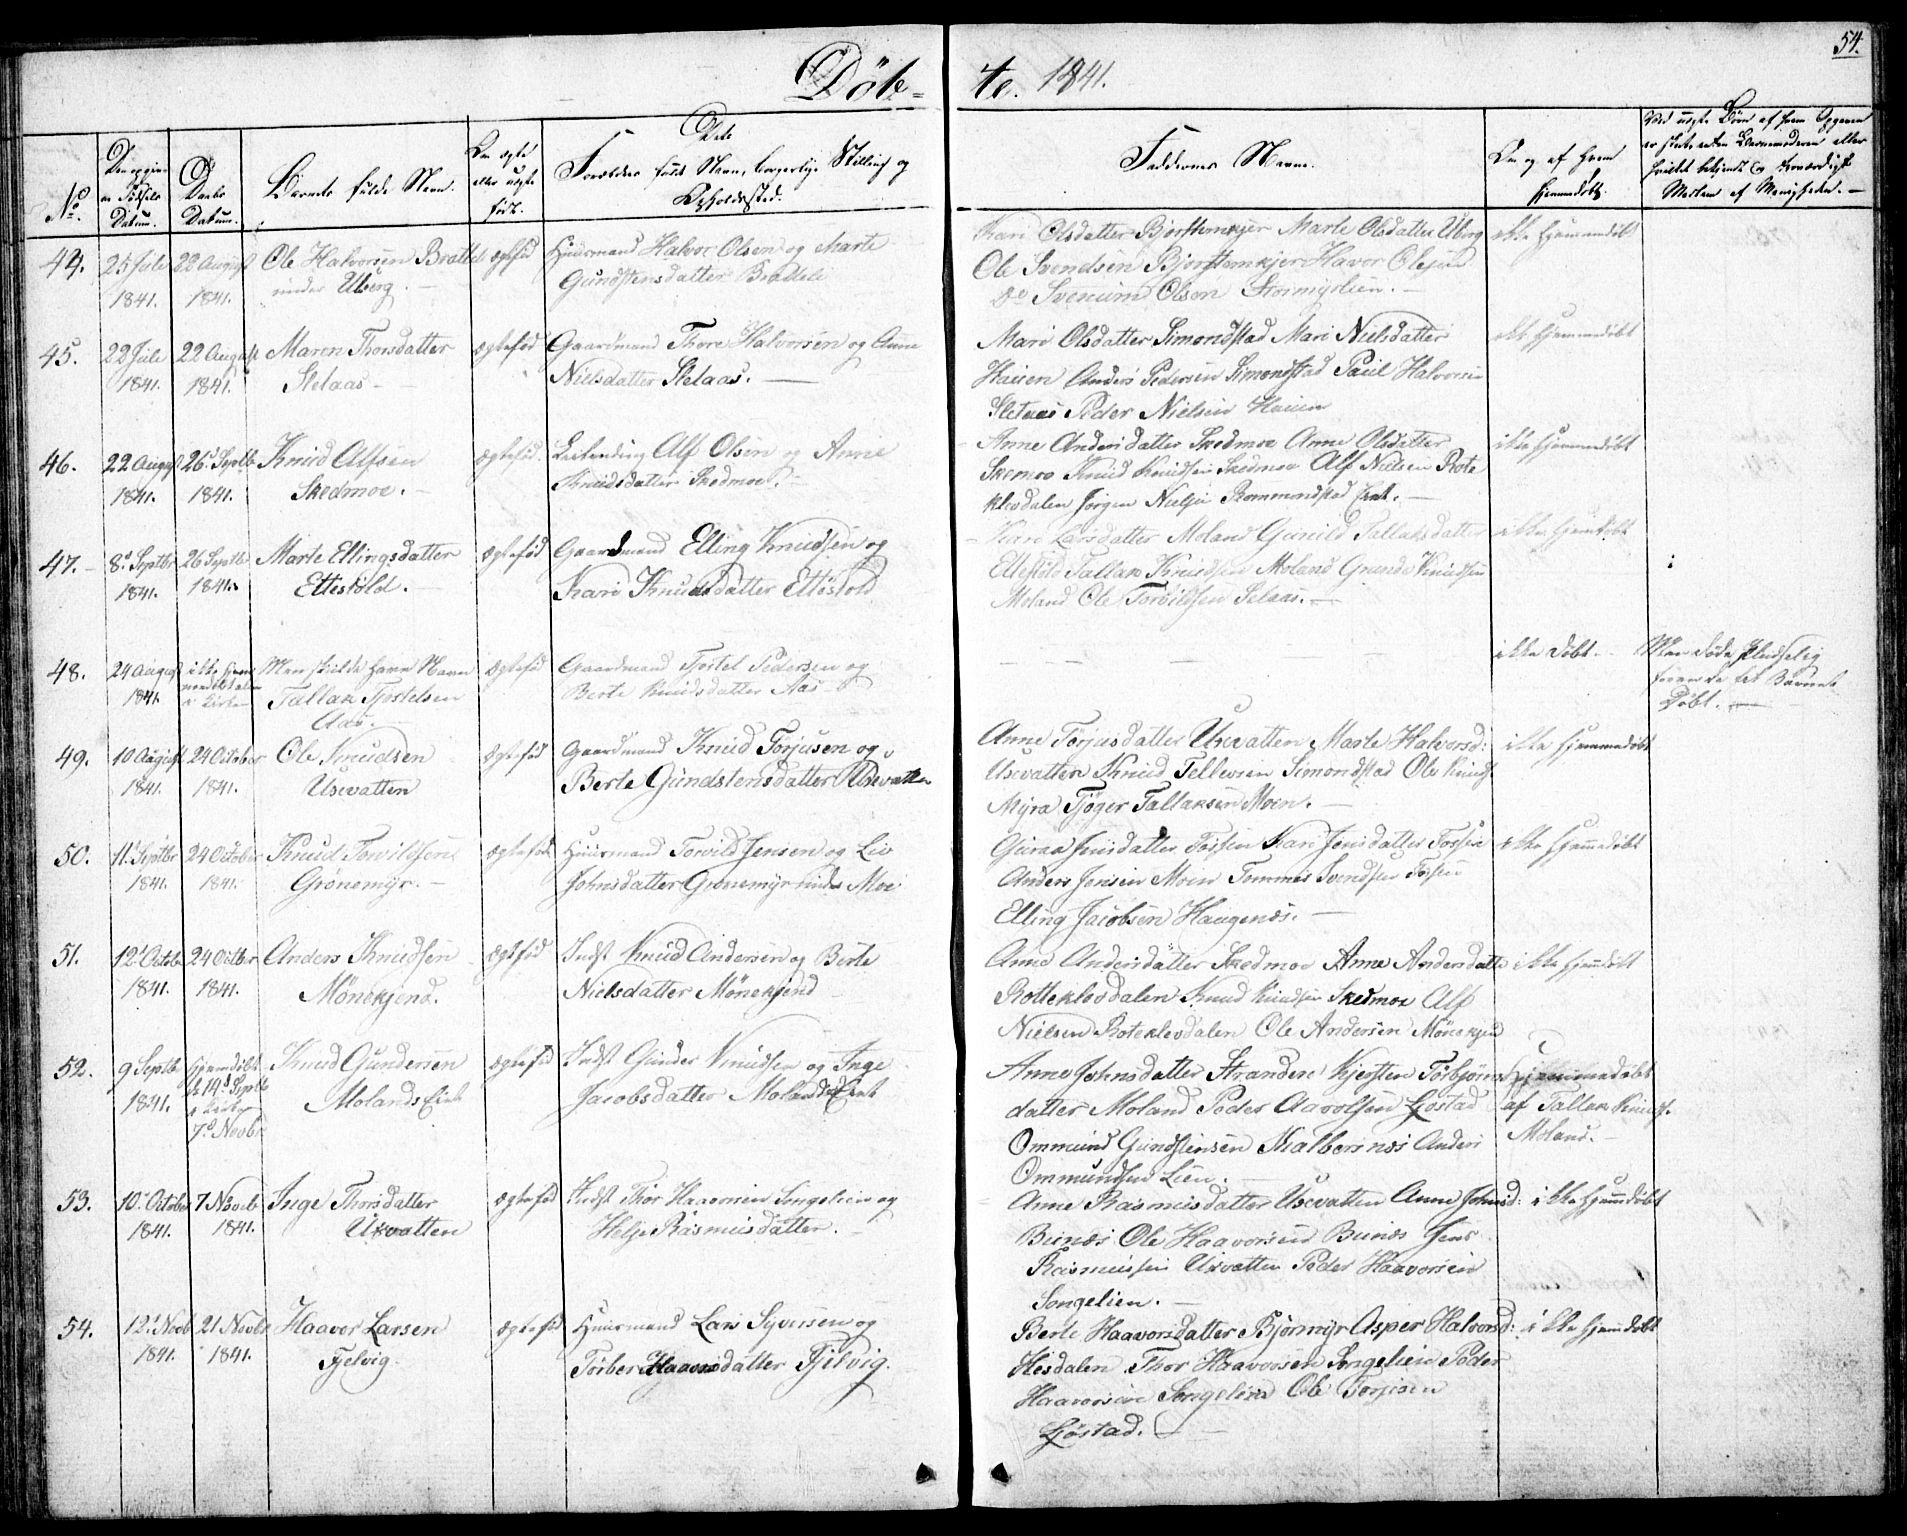 54.
Döb-
te. 1841.
No.
Den opgiv-
ne Födsels
Datum.
Daabs
Datum.
Barnets fulde Navn.
Om ægte
eller uægte
född.
Dets
Forældres fulde Navn, borgerlige Stilling og
Opholdssted.
Faddernes Navne.
Om og af hvem
hjemmedöbt.
Ved uægte Börn af hvem Opgaven
er skeet, enten Barnemoderen eller
Medlem af Menigheden.
44. 25 Jule
1841.
22 August
1841.
Ole Halvorsen Brattel
under Uberg.
ægtefød
Huusmand Halvor Olsen og Marte
Gundstensdatter Brattele
Kari Olsdatter Marte Olsdatter Uberg
Ole Svendsen
Do Svenum Olsen
ikke hjemmedöbt
45. 22 Julie
1841.
22 August
1841.
Maren Thorsdatter
Sletaas
ægtefød
Gaardmand Thore Halvorsen og Anne
Nielsdatter Sletaas.
Mari Olsdatter Simondstad Mari Nielsdatter
Hauen Anders Pedersen Simondstad Paul Halvorsen
Sletaas Peder Nielsen Hauen
ikke hjemmedöbt
46. 22 August
1841.
26d Septbr
1841.
Knud Alfsen
Skedmoe.
ægtefød.
Leilending Alf Olsen og Anne
Knudsdatter Skedmoe.
Anne Andersdatter Skedmoe Anne Olsdatter
Skemoe Knud Knudsen Skedmoe Alf Nielsen Rote
klevdalen Jörgen Nielsen Rommundstad Eent.
ikke hjemmedöbt
47. 8d Septbr
1841.
26 Septbr
1841.
Marte Ellingsdatter
Ettestöld.
ægtefød
Gaardmand Elling Knudsen og
Kari Knudsdatter Ettestöld
Kari Larsdatter Moland Gunild Tallaksdatter
Ettestöld Tallak Knudsen Moland Grunde Knudsen
Moland Ole Torvildsen Selaas.
ikke hjemdöbt
48. 24 August
1841
ikke hjem
medöbt eller
i Kirken
Men skulde havt Navn
Tallak Tjostelsen
Aas.
ægtefød
Gaardmand Tjostel Pedersen og
Berte Knudsdatter Aas
ikke döbt.
Men döde pludselig
förend det blev
Döbt.
49. 10 August
1841.
24 October
1841.
Ole Knudsen
Usevatten
ægtefød
Gaardmand Knud Torjusen og
Berte Gundstensdatter Usevatten
Anne Torjusdatter Usevatten Marte Halvorsd:
Usevatten Knud Tellevsen Simondstad Ole Knuds.
Myra Tjöger Tallaksen Moen.
ikke hjemmedöbt
50. 11d Septbr
1841.
24 October
1841.
Knud Torvildsen
Grönemyr.
ægtefød
Huusmand Torvild Jensen og Liv
Johnsdatter Grönemyr under Moe
Guroa Jensdatter Fossen Kari Jensdatter Fossen
Anders Jensen Moen Tommes Svendsen Fossen
Elling Jacobsen Haugenæs.
ikke hjemmedöbt
51. 12d Octobr
1841.
24 Octbr
1841.
Anders Knudsen
Mönekjend.
ægtefød
Indst Knud Andersen og Berte
Nielsdatter Mönekjend
Anne Andersdatter Skedmoe Anne Andersdatter
Rotteklevdalen Knud Knudsen Skedmoe Alf
Nielsen Roteklevdalen Ole Andersen Mönekjend
ikke hjemdöbt
52. 9 Septbr
1841.
Hjemdöbt
d. 14d Septbr
i Kirken
7d Novbr
Knud Gundersen
Molands Eiet
ægtefød
Indst Gunder Knudsen og Inge
Jacobsdatter Molands Eiet
Anne Johnsdatter Stranden Kjersten Torbjörns
datter Moland Peder Aavolsen Gjöstad
Ommund Gundstensen Kalbersnæs Anders
Ommundsen Lien.
Hjemmedöbt
af Tallak Knuds.
Moland.
53. 10d October
1841.
7 Novbr
1841.
Inge Thorsdatter
Usevatten
ægtefød
Indst Thor Haavorsen Songelien og
Helje Rasmusdatter.
Anne Rasmusdatter Usevatten Anne Johnsd:
Beinæs Ole Haavorsen Beinæs Jens
Rasmussen Usevatten Peder Haavorsen
Songelien.
ikke hjemdöbt
54. 12d Novb
1841.
21 Novbr
1841.
Haavor Larsen
Fjelvig.
ægtefød
Huusmand Lars Syversen og
Torber Haavorsdatter Fjelvig.
Berte Haavorsdatter Björnmyr Asper Halvorsd:
Hesdalen Thor Haavorsen Songelien Peder
Haavorsen Songelien Ole Torjusen
Gjöstad.
ikke hjemdöbt